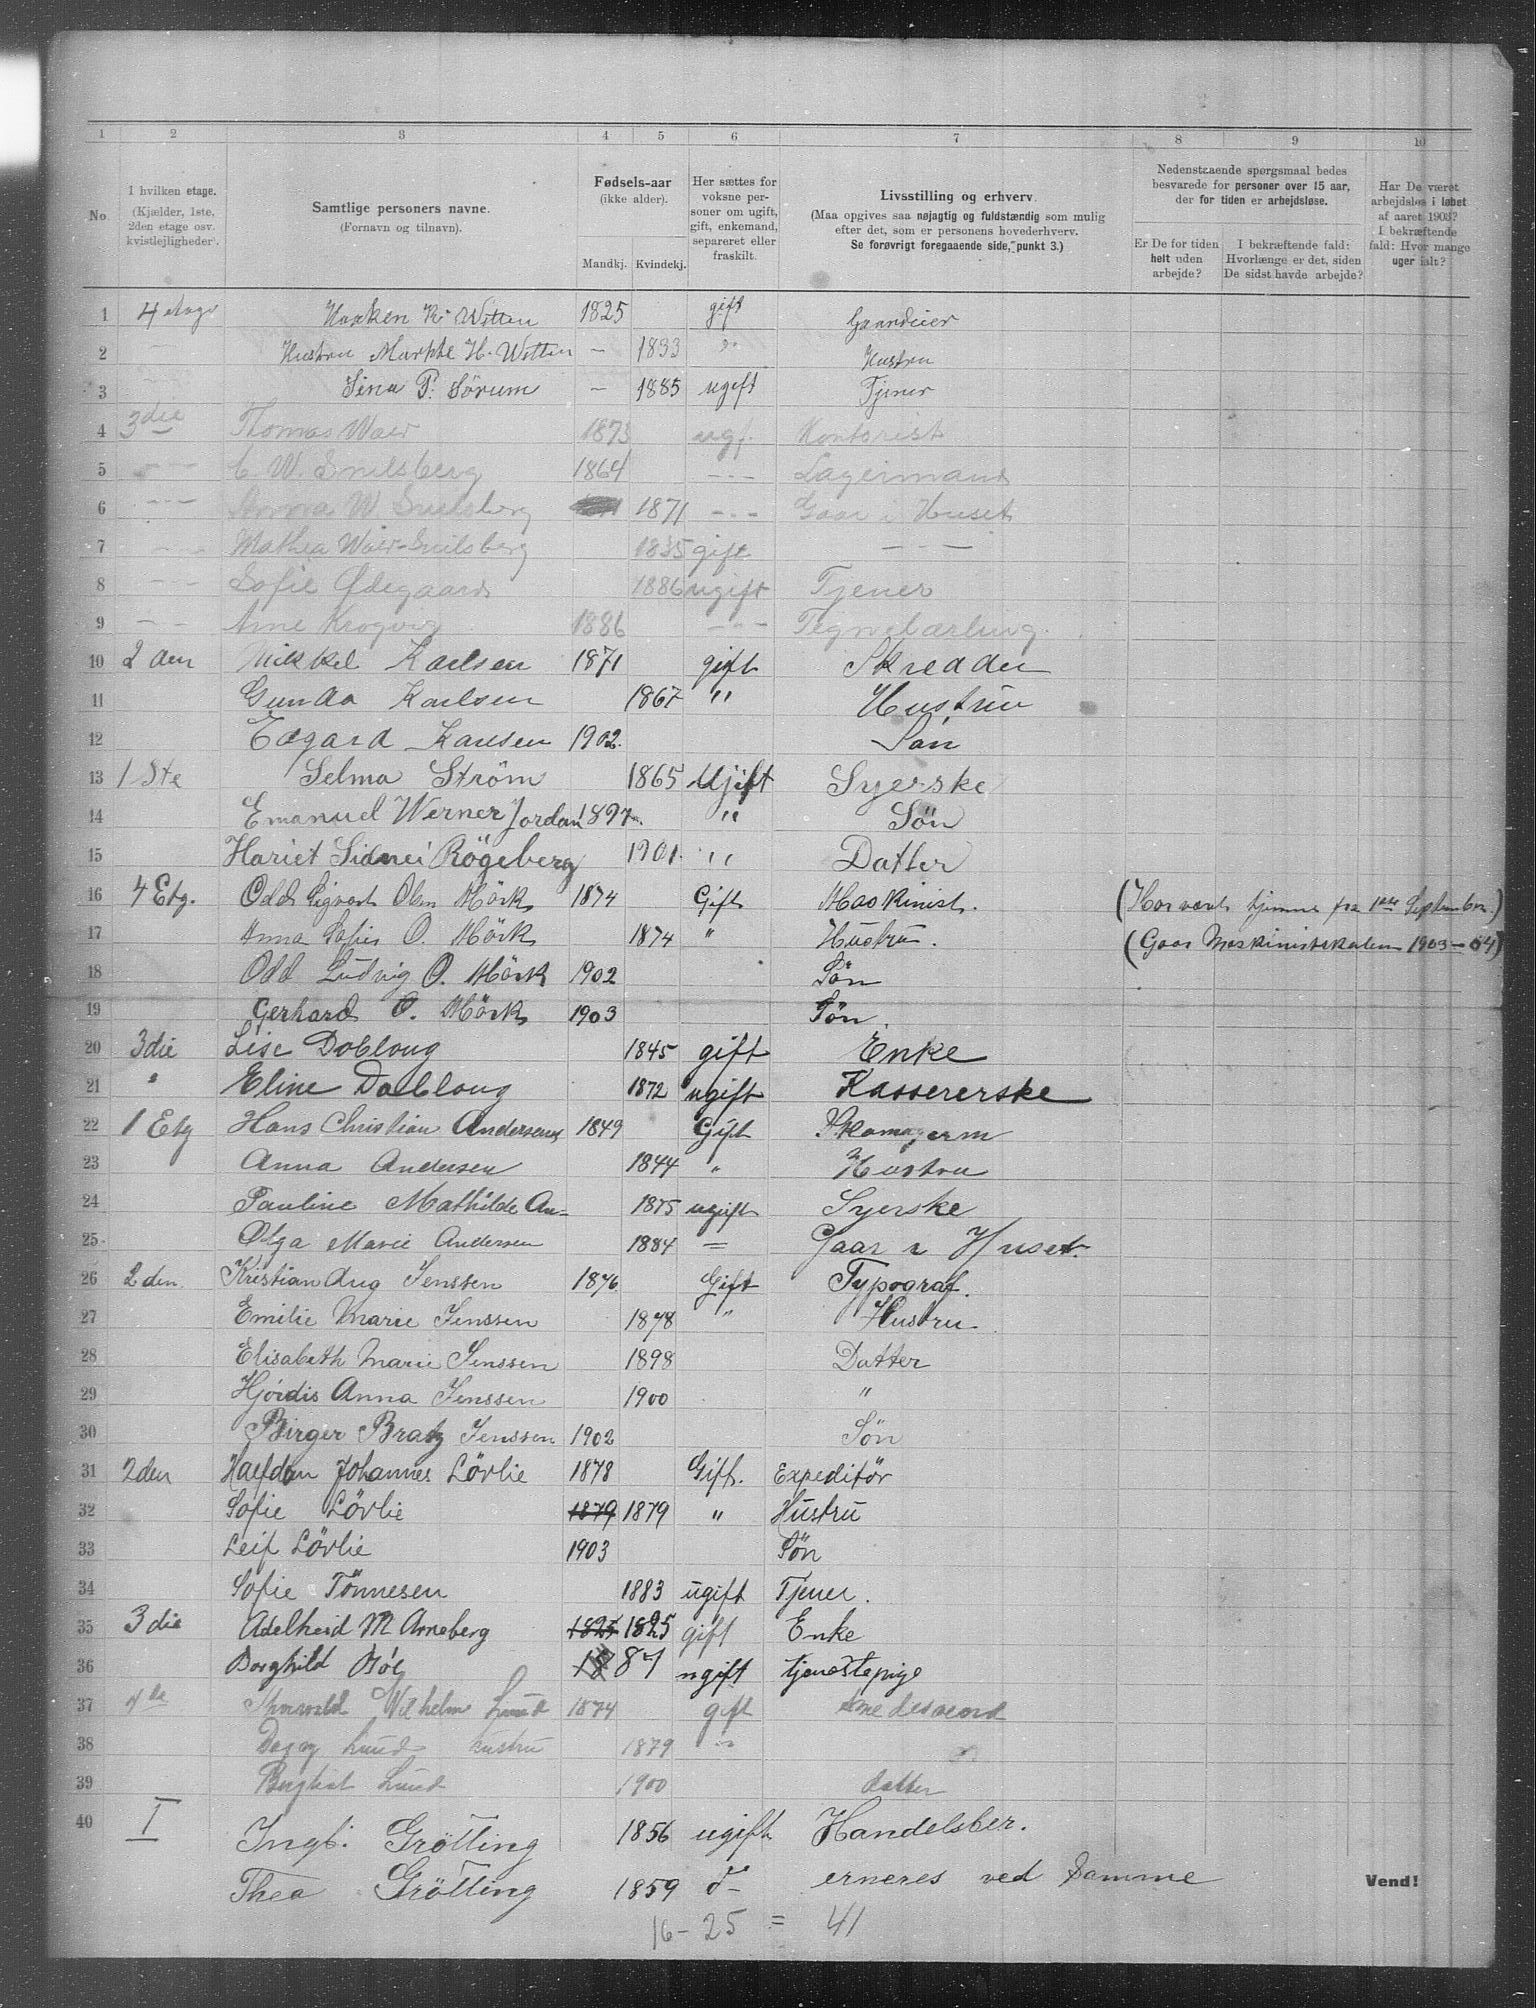 1 2 3 4 5 6 7 8 9 10
No.
I hvilken etage. (Kjælder, 1ste, 2den etage osv. kvistlejligheder).
Samtlige personers navne. (Fornavn og tilnavn).
Fødsels-aar (ikke alder).
Mandkj. Kvindekj.
Her sættes for voksne personer om ugift, gift, enkemand, separeret eller fraskilt.
Livsstilling og erhverv. (Maa opgives saa nøjagtig og fuldstændig som mulig efter det, som er personens hovederhverv. Se forøvrigt foregaaende side, punkt 3.)
Nedenstaaende spørgsmaal bedes besvarede for personer over 15 aar, der for tiden er arbejdsløse.
Er De for tiden helt uden arbejde?
I bekræftende fald: Hvorlænge er det, siden De sidst havde arbejde?
Har De været arbejdsløs i løbet af aaret 1903? I bekræftende fald: Hvor mange uger ialt?
1 4 etage Haaken K. Witten 1825 gift Gaardeier
2 Hustru Marthe H. Witten – 1833 " Hustru
3 Sina P. Sörum – 1885 ugift Tjener
4 3die Thomas Waer 1873 ugf. Kontorist
5 – – – C W. Snilsberg 1864 – – – Lagermand
6 – – – W. Snilsberg 1871 – – – Gaar i Huset
7 – – – Mathea Waer-Snilsberg 1835 gift – – –
8 – – – Sofie Ødegaard 1886 ugift Tjener
9 – – – Arne Krogvig 1886 – – – Tegnelærling.
10 2 den Mikkel Karlsen 1871 gift Skredder
11 Gunda Karlsen 1867 " Hustru
12 Edgard Karlsen 1902. Søn
13 1 Ste Selma Ström 1865 Ugift Syerske
14 Emanuel Werner Jordan 1897. " Sön
15 Hariet Sidnei Rögeberg 1901. " Datter
16 4 Etg. Odd Sigvart Olsen Mörk 1874 Gift Maskinist. (Har vært hjemme fra 1ste September.)
17 Anna Sofie O. Mörk 1874 " Hustru. (Gaar Maskinistskolen 1903–04)
18 Odd Ludvig O. Mörk 1902 Sön
19 Gerhard O. Mörk 1903 Sön.
20 3die Lise Dobloug 1845 gift Enke
21 " Eline Dobloug 1872 ugift Kassererske
22 1 Etg Hans Christian Andersen 1849 Gift Skomagerm
23 Anna Andersen 1844 " Hustru
24 Pauline Mathilde An- 1875 ugift Syerske
25 Olga Marie Andersen 1884 = Gaar i Huset.
26 2den Kristian Aug Jenssen 1876. Gift Typograf.
27 Emilie Marie Jenssen 1878 " Hustru.
28 Elisabeth Marie Jenssen 1898 Datter
29 Hjördis Anna Jenssen 1900 "
30 Birger Bratz Jenssen 1902 Sön
31 2den Halfdan Johannes Lövlie 1878 Gift. Expeditör
32 Sofie Lövlie 1879 1879 " Hustru
33 Leif Lövlie 1903 Sön
34 Sofie Tönnesen 1883 ugift Tjener.
35 3 die Adelheid M Arneberg 1825 1825 gift Enke
36 Borghild 18 87 ugift tjenestepige
37 4de Thorvald Vilhelm Lund 1874 gift smedsvend
38 Dagny Lund hustru 1879 "
39 Lund 1900 datter
40 I Ingb. Grötting 1856 ugift Handelsber.
Thea Grötting 1859 d– erneres ved Samme
Vend!
16 – 25 = 41